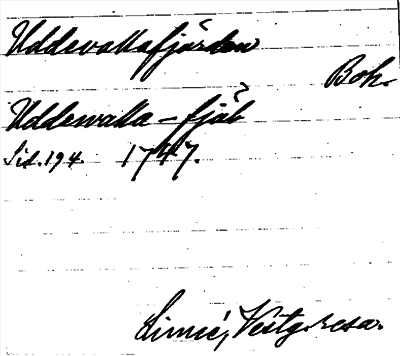 Uddevallafjärden
Boh.
Uddewalla-fjäl
Sid. 194. 1747.
Linné, Västg. resa.